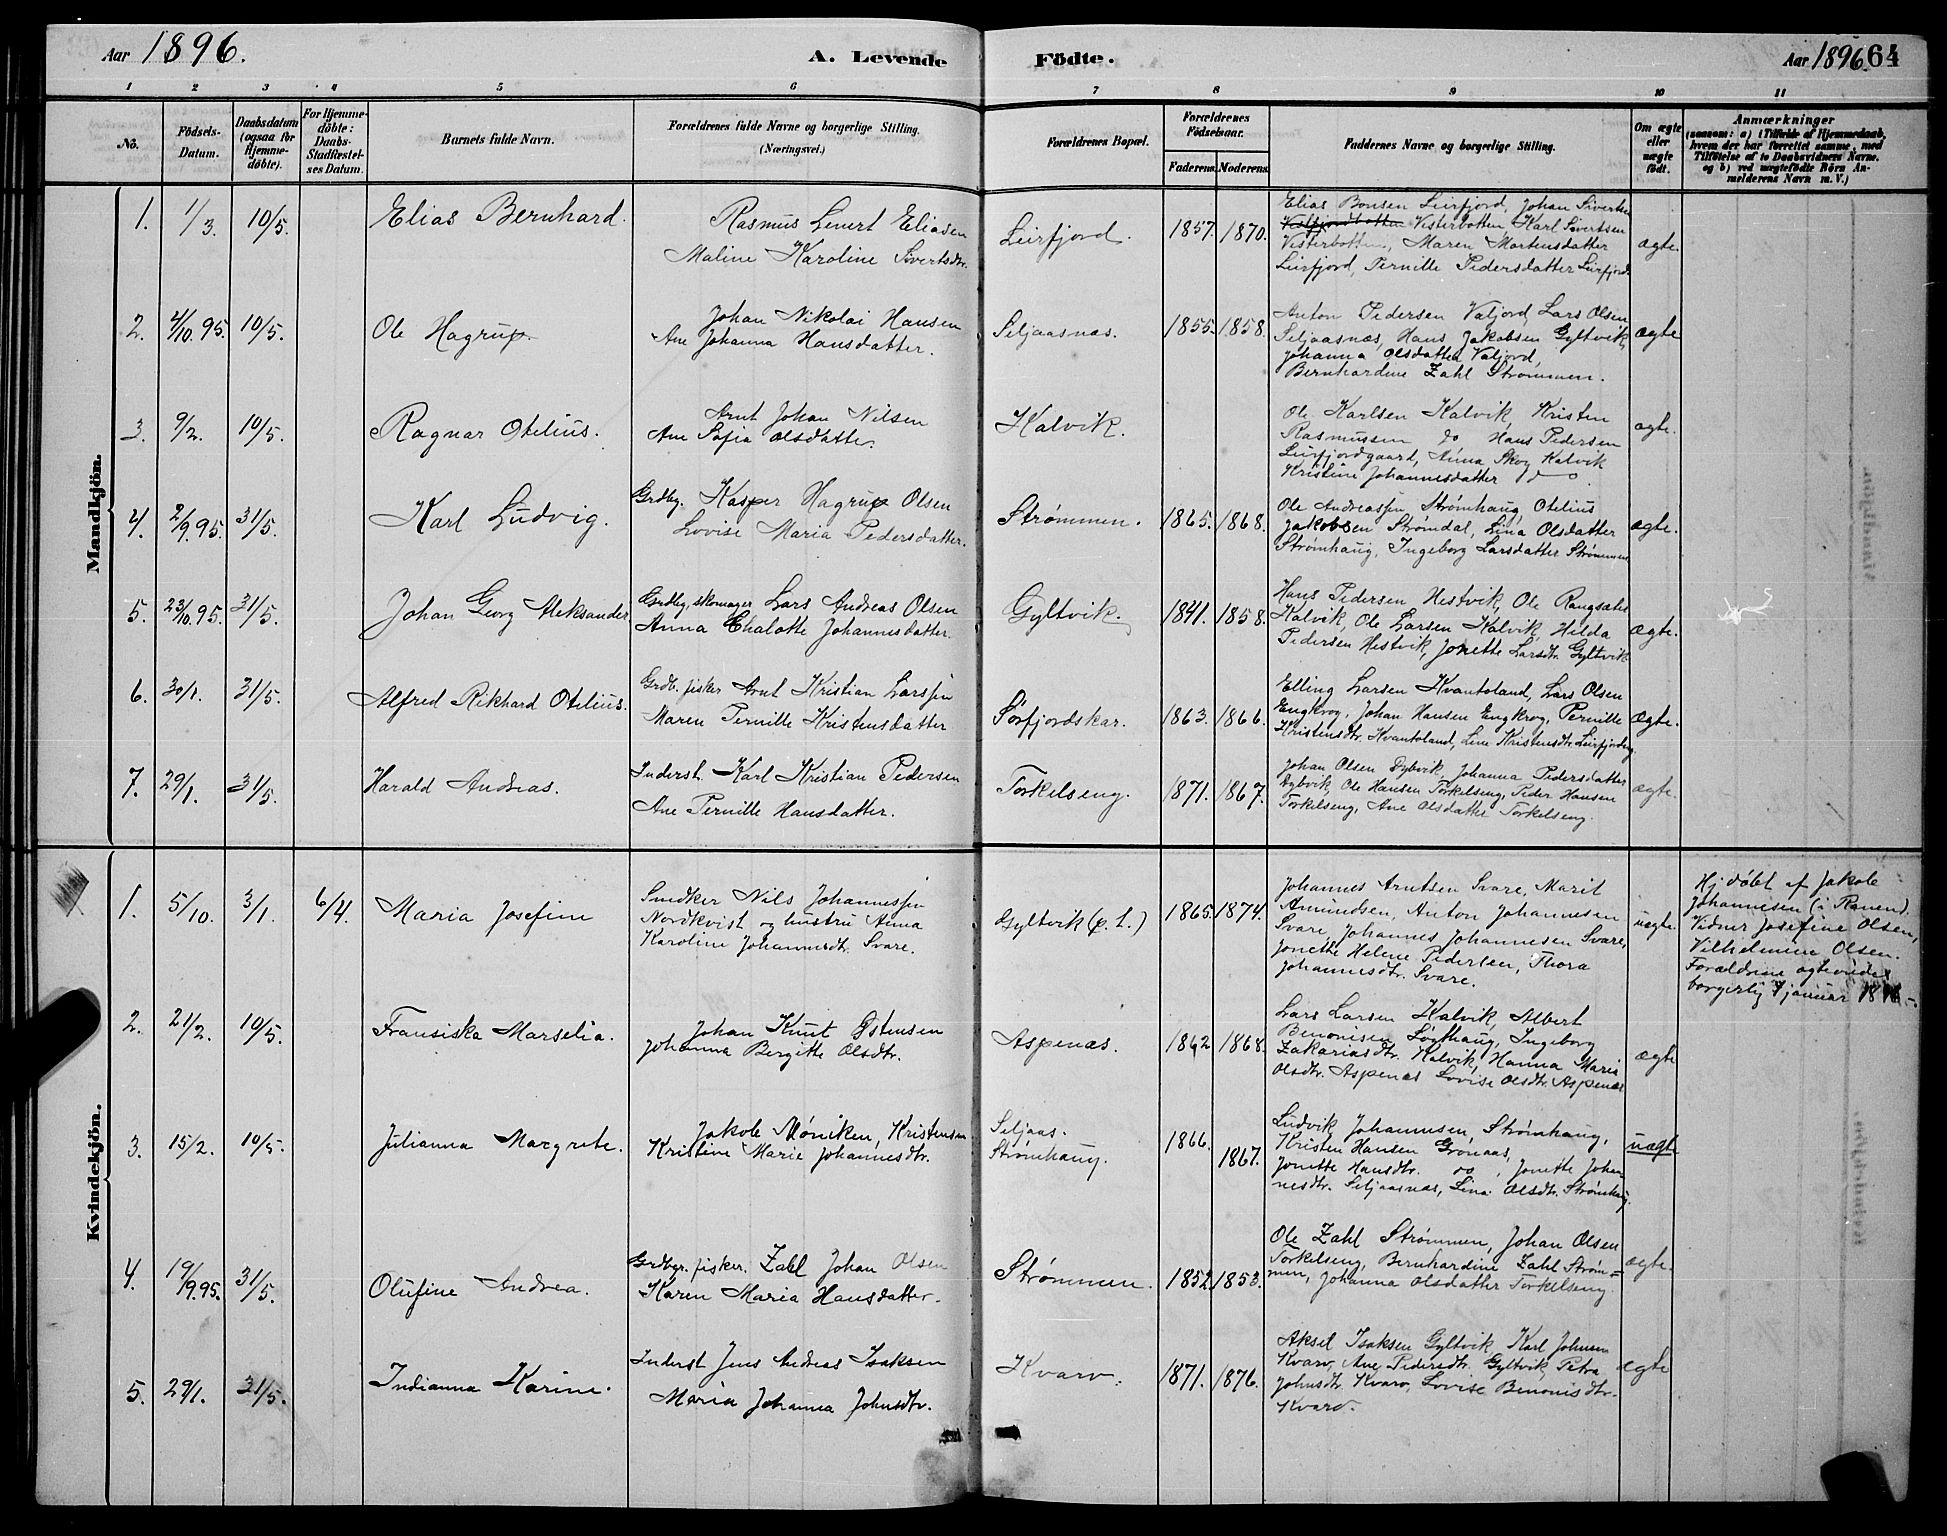 Aar 1896.
A. Levende
Födte.
Aar 1896. 64
1 2 3 4 5 6 7 8 9 10 11
No.
Födsels-
Datum.
Daabsdatum
(ogsaa for
Hjemme-
döbte).
For Hjemme-
döbte:
Daabs-
Stadfæstel-
ses Datum.
Barnets fulde Navn.
Forældrenes fulde Navne og borgerlige Stilling.
(Næringsvei.)
Forældrenes Bopæl.
Forældrenes
Födselsaar.
Faderens. Moderens.
Faddernes Navne og borgerlige Stilling.
Om ægte
eller
uægte
födt.
Anmærkninger
(saasom: a) i Tilfælde af Hjemmedaab,
hvem der har forrettet samme, med
Tilföielse af to Daabsvidners Navne.
og b) ved uægtefödte Börn An-
melderens Navn m. V.)
Mandkjön.
1. 1/3. 10/5. Elias Bernhard.
Rasmus Lenert Eliasen
Maline Karoline Sivertsdtr.
Leirfjord. 1857. 1870.
Elias Bonsen Leirfjord, Johan Sivertsen
Vesterbotten, Karl Sivertsen
Vesterbotten, Maren Mortensdatter
Leirfjord, Pernille Pedersdatter Leirfjord.
ægte.
2. 4/10.95. 10/5. Ole Hagrup.
Johan Nikolai Hansen
Ane Johanna Hansdatter.
Seljaasnæs. 1855. 1858.
Anton Pedersen Valjord, Lars Olsen
Seljaasnæs, Hans Jakobsen Gyltvik,
Johanna Olsdatter Valjord,
Bernhardine Zahl Strømmen.
ægte
3. 9/2. 10/5. Ragnar Otelius.
Arnt Johan Nilsen
Ane Sofia Olsdatter.
Kalvik.
Ole Karlsen Kalvik, Kristen
Rasmussen do Hans Pedersen
Leirfjordgaard, Anna Skog Kalvik
Kristine Johannesdatter do.
ægte.
4. 2/9.95. 31/5. Karl Ludvig.
Grdbg. Kasper Hagrup Olsen
Lovise Maria Pedersdatter.
Strømmen. 1865. 1868.
Ole Andreassen Strømhaug, Otelius
Jakobsen Strømdal, Lina Olsdatter
Strømhaug, Ingeborg Larsdatter Strømmen
ægte.
5. 23/10.95. 31/5. Johan Georg Aleksander
Grdbg, skomager Lars Andreas Olsen
Anna Chalotte Johannesdatter.
Gyltvik. 1841. 1858.
Hans Pedersen Hestvik, Ole Rangsæter
Kalvik, Ole Larsen Kalvik, Hilda
Pedersen Hestvik, Jonette Larsdtr. Gyltvik
ægte.
6. 30/1. 31/5. Alfred Rikhard Otelius.
Grdb. fisker Arnt Kristian Larssen
Maren Pernille Kristensdatter
Sørfjordskar. 1863. 1866.
Elling Larsen Kvantoland, Lars Olsen
Engkrog, Johan Hansen Engkrog, Pernille
Kristensdtr. Kvantoland, Line Kristensdtr. Leirfjordg.
ægte.
7. 29/1. 31/5. Harald Andreas.
Inderst. Karl Kristian Pedersen
Ane Pernille Hansdatter.
Torkelseng. 1871. 1867.
Johan Olsen Dybvik, Johanna Pedersdatter
Dybvik, Ole Hansen Torkelseng, Peder Hansen
Torkelseng, Ane Olsdatter Torkelseng.
ægte.
Kvindekjön.
1. 5/10. 3/1. 6/4. Maria Josefine
Snedker Nils Johannessen
Nordkvist og hustru Anna
Karoline Johannesdtr. Svare.
Gyltvik (p. t.) 1865. 1874.
Johannes Arntsen Svare, Marit
Amundsen, Anton Johannesen
Svare, Johannes Johannesen Svare,
Jonette Helene Pedersen, Thora
Johannesdtr. Svare.
uægte.
Hj. döbt af Jakob
Johannesen (i Ranen).
Vidner Josefine Olsen,
Vilhelmine Olsen.
Forældrene ægteviede
borgerlig 7 januar
2. 21/2. 10/5. Fransiska Marselia.
Johan Knut Østensen
Johanna Bergitte Olsdtr.
Aspenæs. 1862 1868.
Lars Larsen Kalvik, Albert
Benonisen Lørthaug, Ingeborg
Zakariasdtr. Kalvik, Hanna Maria
Olsdtr. Aspenæs Lovise Olsdtr. Aspenæs
ægte
3. 15/2. 10/5. Julianna Margrete.
Jakob Møniken, Kristensen
Kristine Marie Johannesdtr.
Seljaas.
Strømhaug.
1866. 1867.
Ludvik Johannesen, Strømhaug,
Kristen Hansen Grønaas,
Jonette Hansdtr. do, Jonette Johan
nesdtr. Seljaasnæs, Lina Olsdtr. Strømhaug.
uægte
4. 19/9.95. 31/5. Olufine Andrea.
Grdbgr. fisker. Zahl Johan Olsen
Karen Maria Hansdatter.
Strømmen. 1852. 1853.
Ole Zahl Strømmen, Johan Olsen
Torkelseng, Bernhardine Zahl Strøm=
men, Johanna Olsdatter Torkelseng.
ægte.
5. 29/1. 31/5. Indianna Karine.
Inderst Jens Andreas Isaksen
Maria Johanna Johnsdtr.
Kvarv. 1871. 1876.
Aksel Isaksen Gyltvik, Karl Johnsen
Kvarv, Ane Pedersdtr. Gyltvik, Petra
Johnsdtr. Kvarv, Lovise Benonisdtr.
Kvarv.
ægte